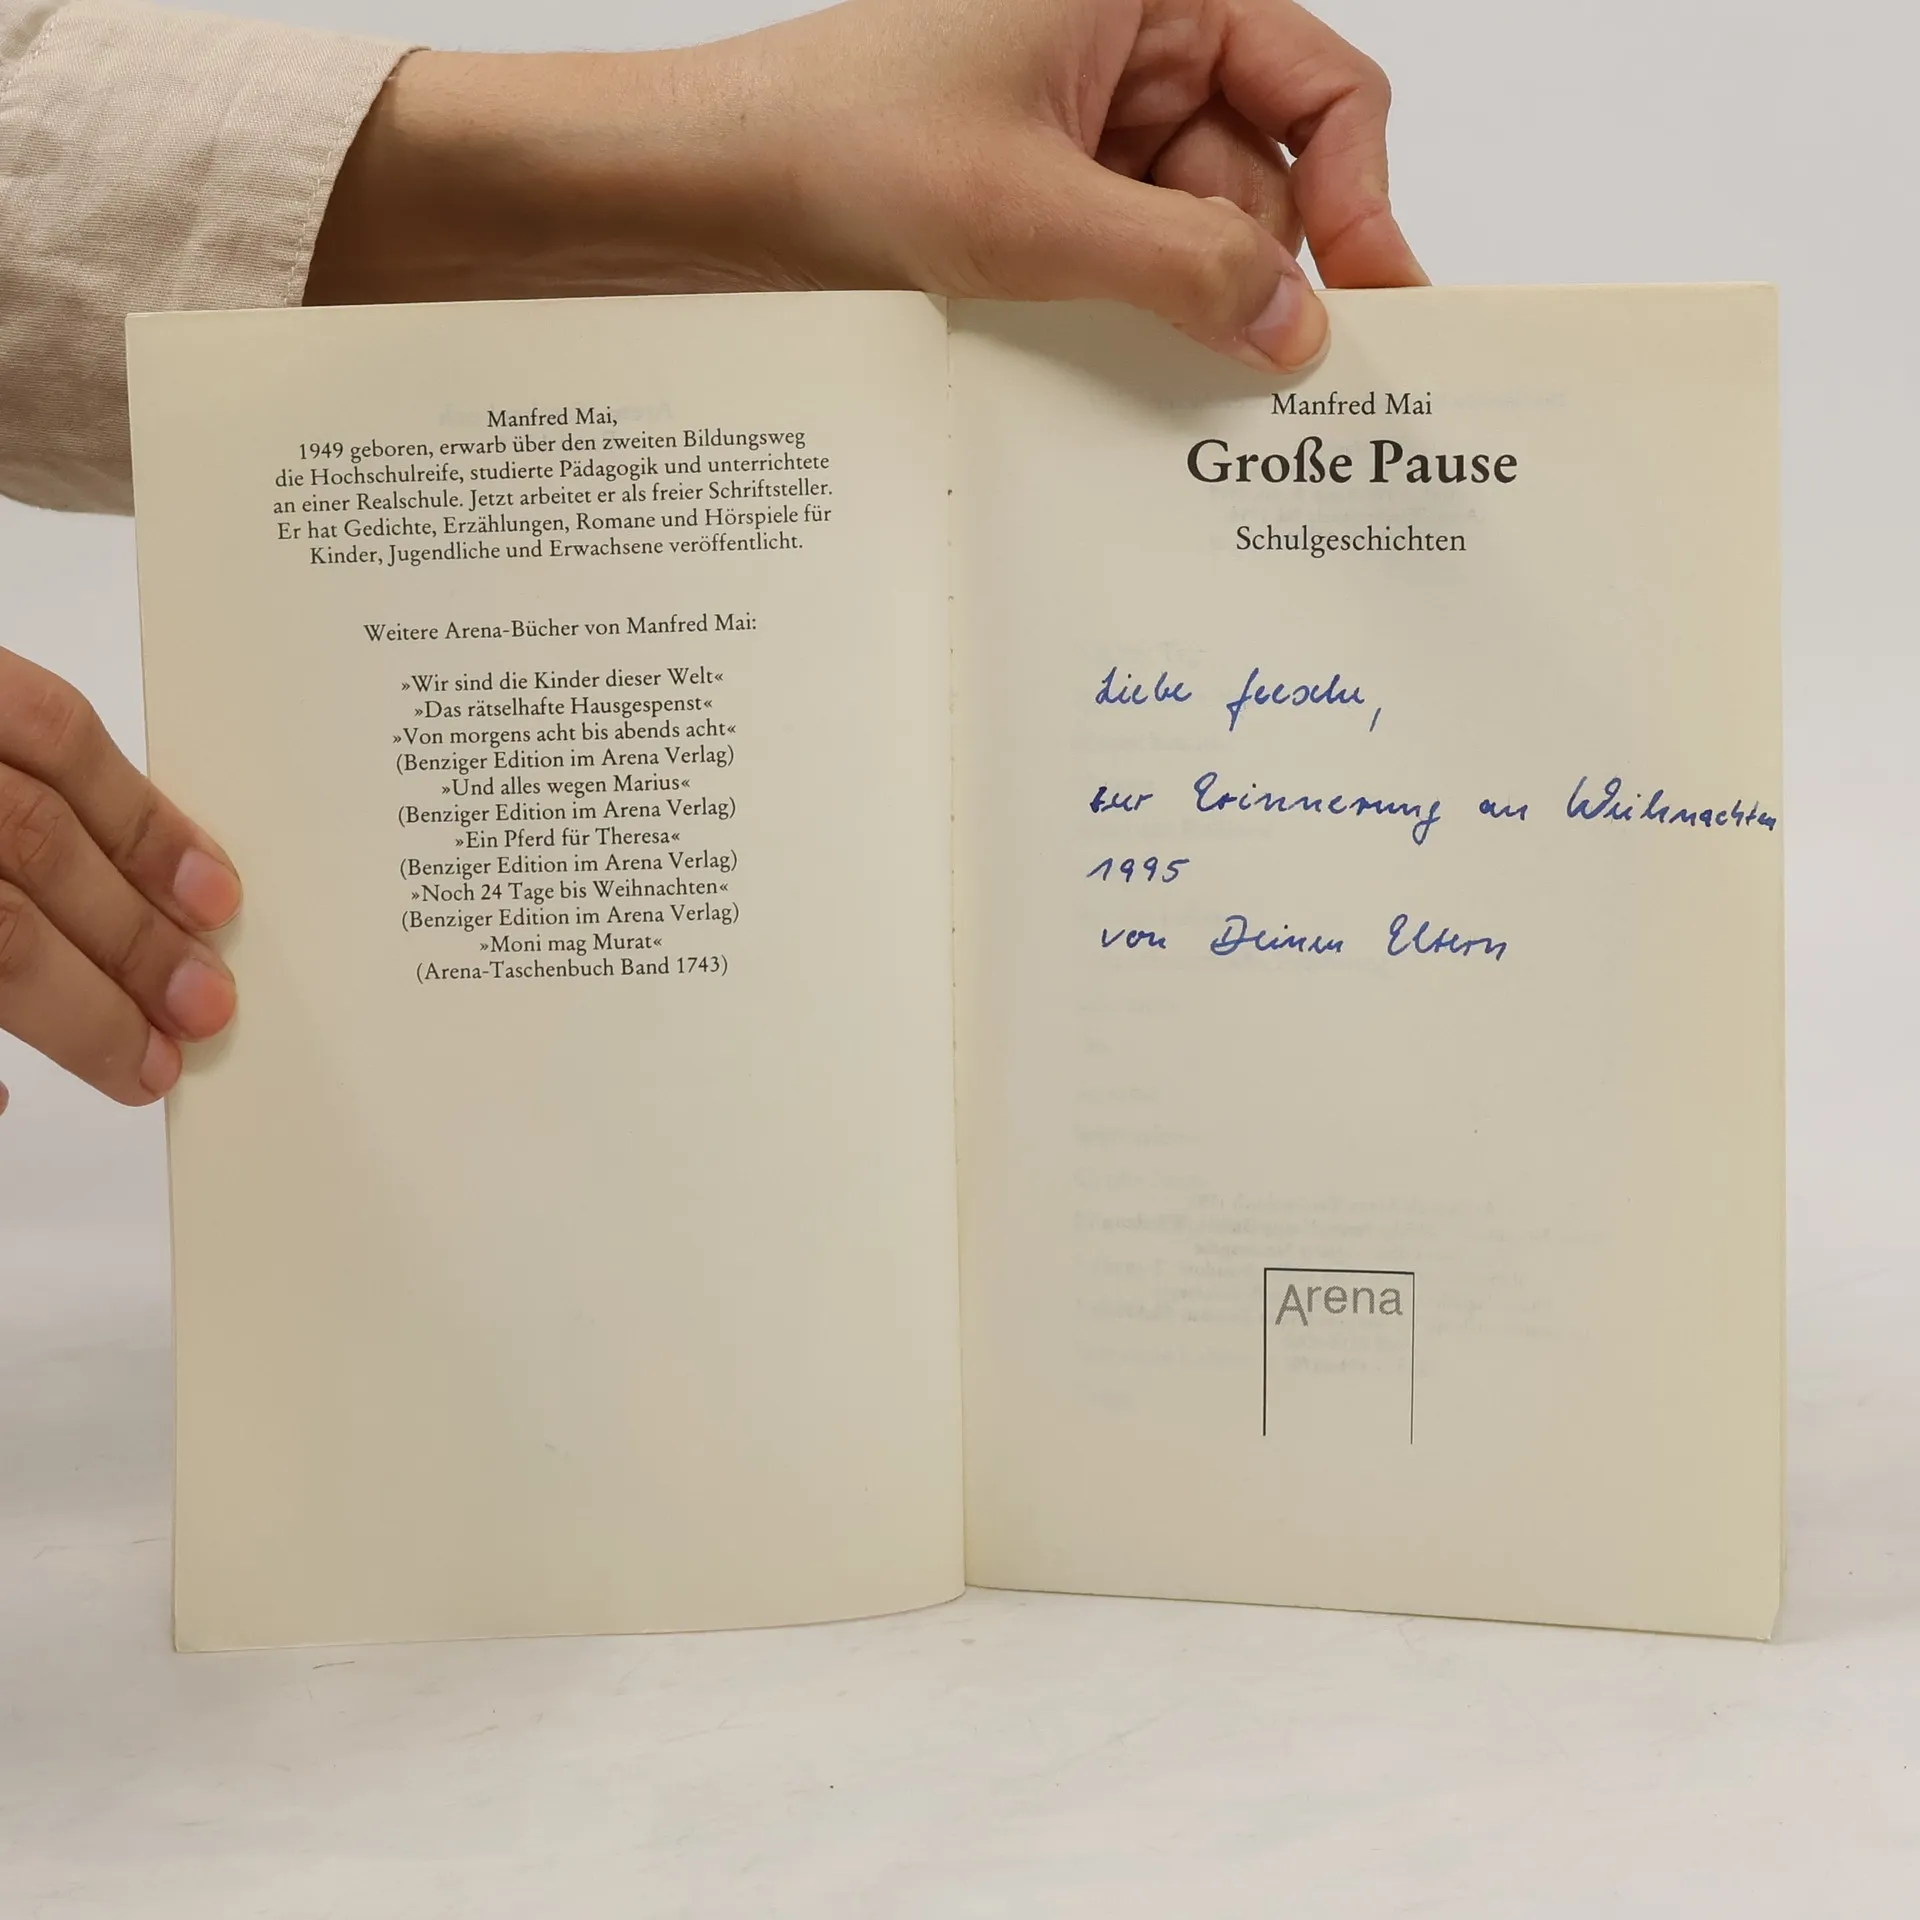 Manfred Mai,
1949 geboren, erwarb über den zweiten Bildungsweg
die Hochschulreife, studierte Pädagogik und unterrichtete
an einer Realschule. Jetzt arbeitet er als freier Schriftsteller.
Er hat Gedichte, Erzählungen, Romane und Hörspiele für
Kinder, Jugendliche und Erwachsene veröffentlicht.
Weitere Arena-Bücher von Manfred Mai:
»Wir sind die Kinder dieser Welt«
»Das rätselhafte Hausgespenst«
»Von morgens acht bis abends acht«
(Benziger Edition im Arena Verlag)
»Und alles wegen Marius«
(Benziger Edition im Arena Verlag)
»Ein Pferd für Theresa«
(Benziger Edition im Arena Verlag)
»Noch 24 Tage bis Weihnachten«
(Benziger Edition im Arena Verlag)
»Moni mag Murat«
(Arena-Taschenbuch Band 1743)
Manfred Mai
Große Pause
Schulgeschichten
Liebe
zur Erinnerung an Weihnachten
1995
von Deinen Eltern
Arena